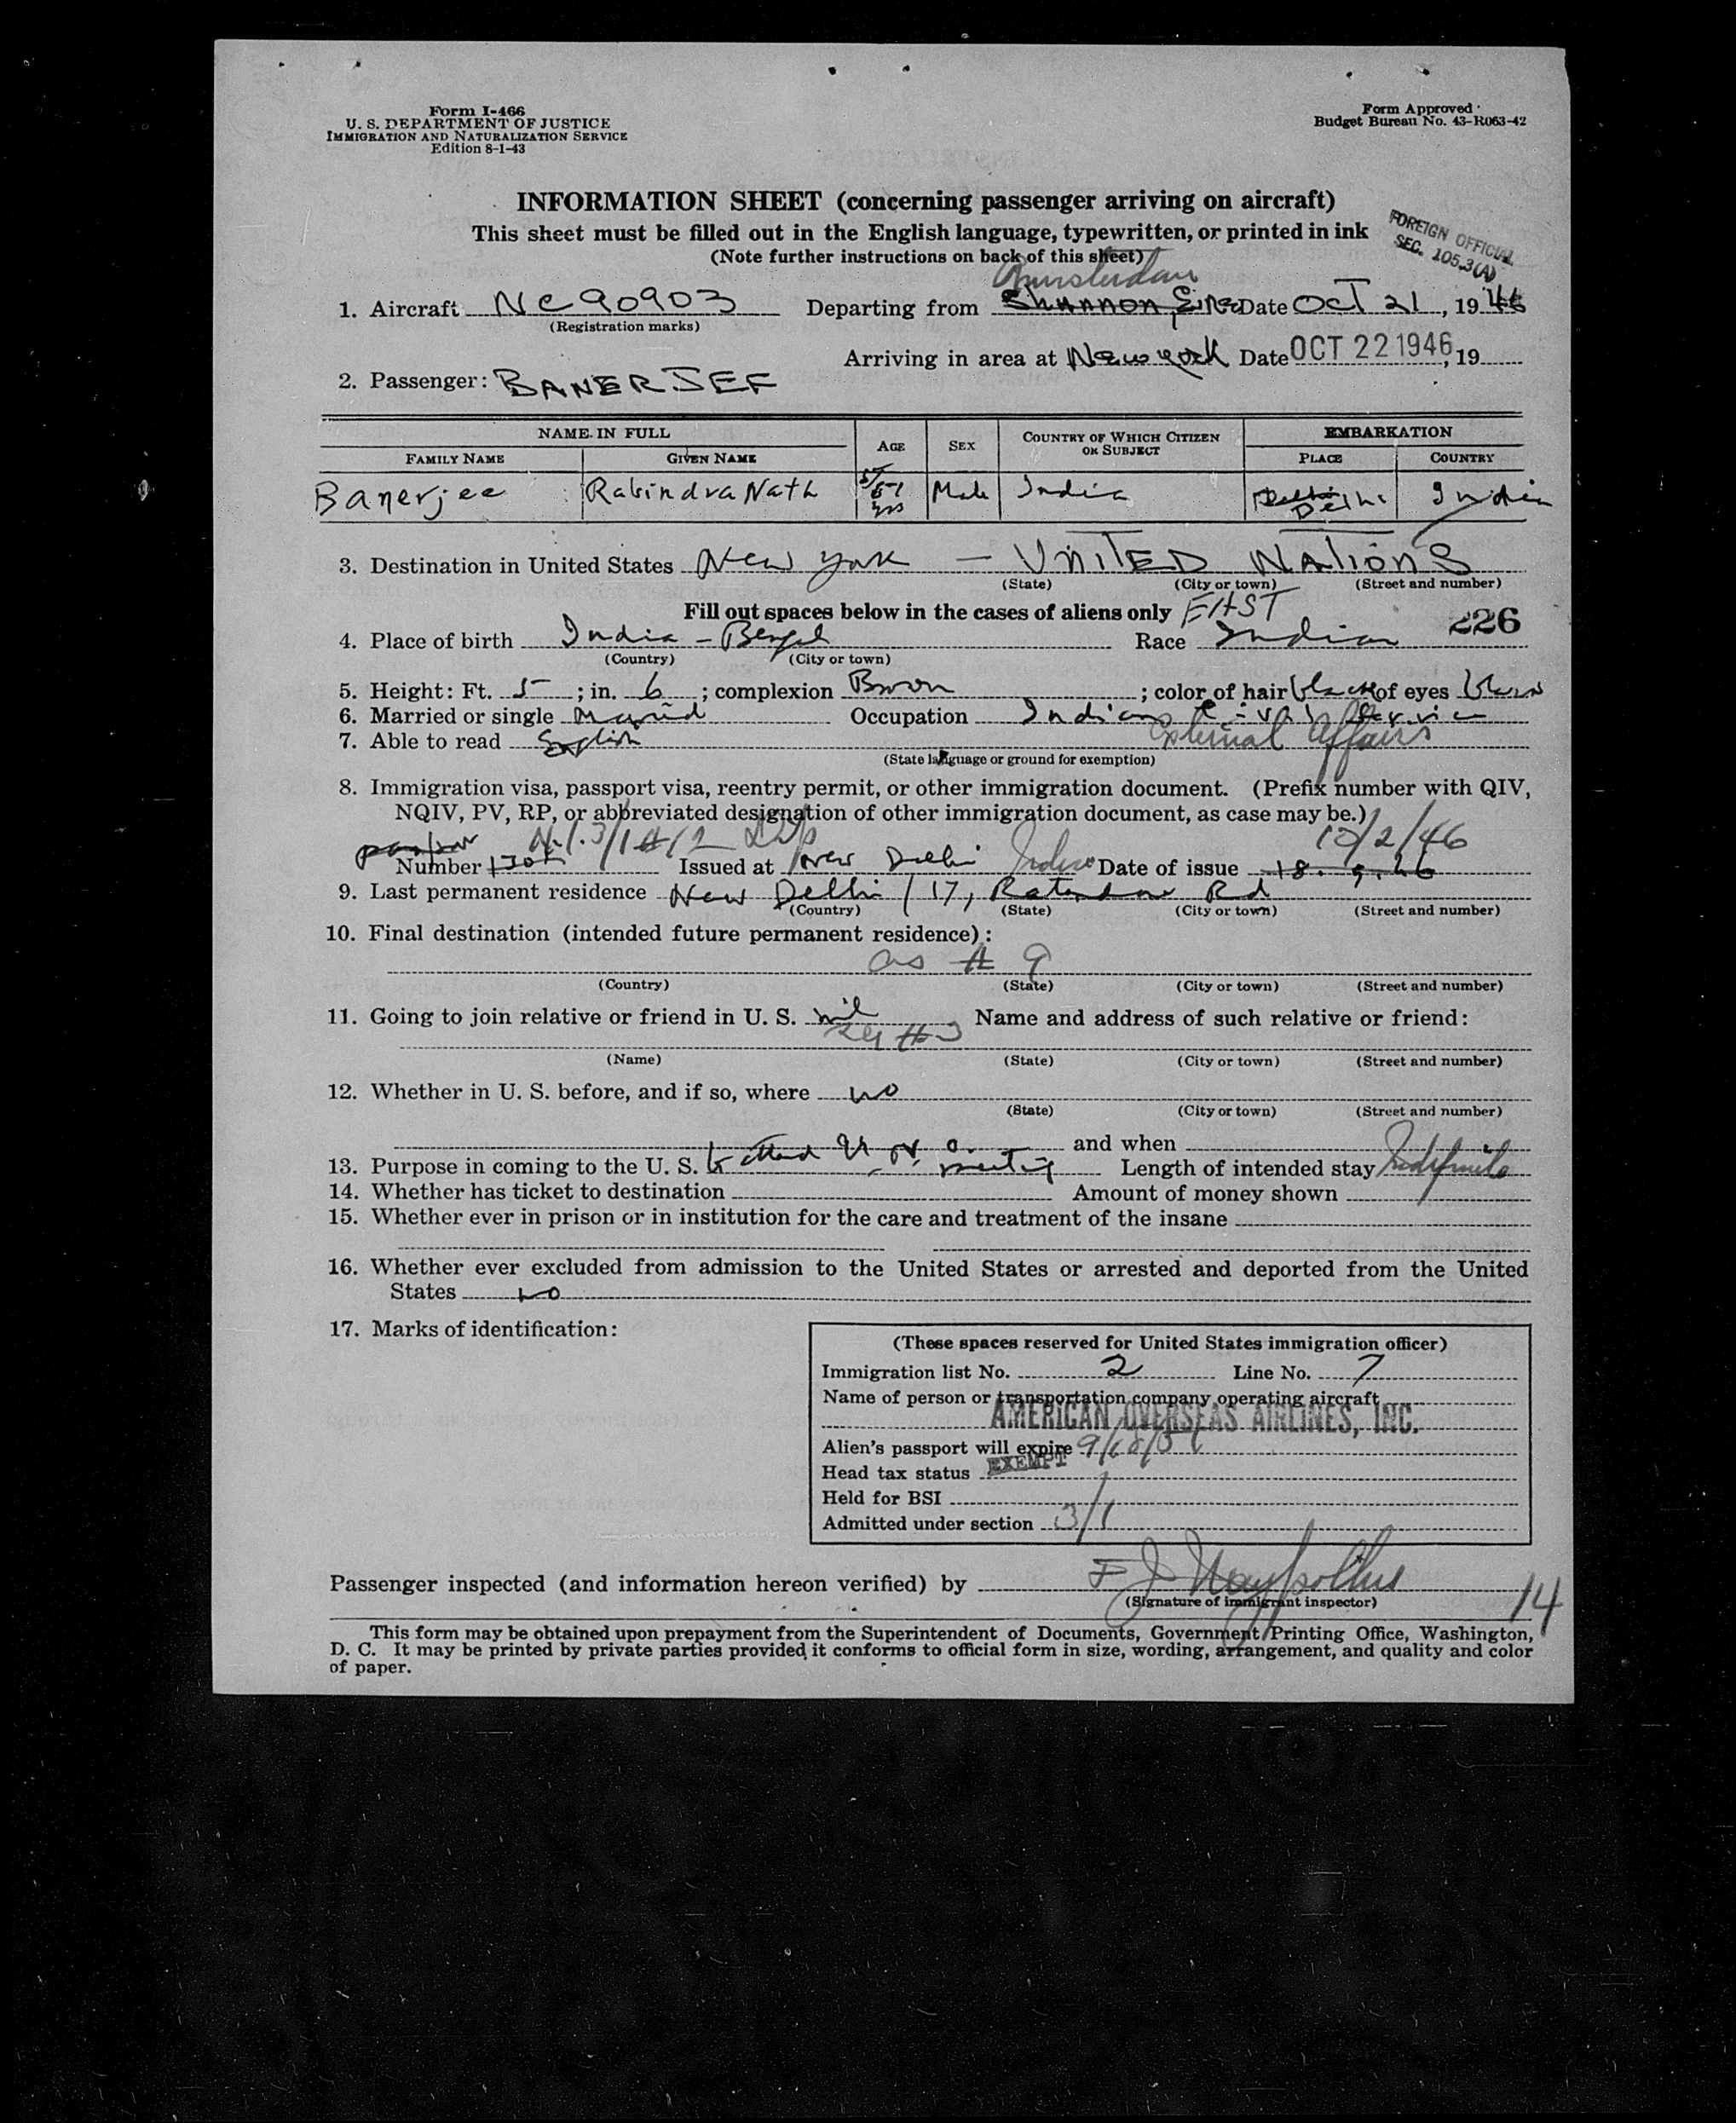 Form I-466
U. S. DEPARTMENT OF JUSTICE
IMMIGRATION AND NATURALIZATION SERVICE
Edition 8-1-43
Form Approved
Budget Bureau No. 43-R063-42
INFORMATION SHEET (concerning passenger arriving on aircraft)
This sheet must be filled out in the English language, typewritten, or printed in ink
(Note further instructions on back of this sheet)
FOREIGN OFFICIAL
SEC. 105.3(A)
Amsterdam
1. Aircraft NC90903 Departing from Shannon, Eire Date OCT 21, 1946
(Registration marks)
Arriving in area at New York Date OCT 22 1946, 19
2. Passenger: BANERJEE
NAME IN FULL AGE SEX COUNTRY OF WHICH CITIZEN OR SUBJECT EMBARKATION
FAMILY NAME GIVEN NAME PLACE COUNTRY
Banerjee Rabindra Nath 51 yrs Male India Delhi India
3. Destination in United States New York — UNITED NATIONS
(State) (City or town) (Street and number)
Fill out spaces below in the cases of aliens only EAST
226
4. Place of birth India - Bengal Race Indian
(Country) (City or town)
5. Height: Ft. 5 ; in. 6 ; complexion Brown ; color of hair black of eyes
6. Married or single Married Occupation Indian Civil Service
External Affairs
7. Able to read English
(State language or ground for exemption)
8. Immigration visa, passport visa, reentry permit, or other immigration document. (Prefix number with QIV,
NQIV, PV, RP, or abbreviated designation of other immigration document, as case may be.)
3/1 10/2/46
Number Issued at New Delhi India Date of issue 18.9.46
9. Last permanent residence New Delhi / 17, Ratendon Rd
(Country) (State) (City or town) (Street and number)
10. Final destination (intended future permanent residence):
as # 9
(Country) (State) (City or town) (Street and number)
11. Going to join relative or friend in U. S. nil Name and address of such relative or friend:
# 3
(Name) (State) (City or town) (Street and number)
12. Whether in U. S. before, and if so, where no
(State) (City or town) (Street and number)
and when
13. Purpose in coming to the U. S. to attend U.N.O. meeting Length of intended stay Indefinite
14. Whether has ticket to destination Amount of money shown
15. Whether ever in prison or in institution for the care and treatment of the insane
16. Whether ever excluded from admission to the United States or arrested and deported from the United
States no
17. Marks of identification:
(These spaces reserved for United States immigration officer)
Immigration list No. 2 Line No. 7
Name of person or transportation company operating aircraft
AMERICAN OVERSEAS AIRLINES, INC.
Alien's passport will expire
Head tax status EXEMPT
Held for BSI
Admitted under section 3/1
Passenger inspected (and information hereon verified) by F J
(Signature of immigrant inspector)
14
This form may be obtained upon prepayment from the Superintendent of Documents, Government Printing Office, Washington,
D. C. It may be printed by private parties provided it conforms to official form in size, wording, arrangement, and quality and color
of paper.